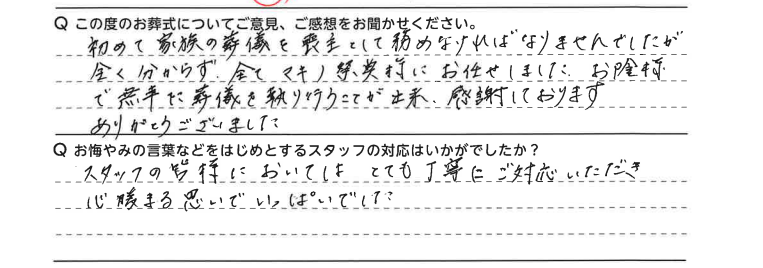 Q この度のお葬式についてご意見、ご感想をお聞かせください。
初めて家族の葬儀を喪主として務めなければなりませんでしたが
全く分からず、全てマキノ祭典様にお任せしました。お陰様
で無事に葬儀を執り行うことが出来、感謝しております
ありがとうございました
Q お悔やみの言葉などをはじめとするスタッフの対応はいかがでしたか？
スタッフの皆様においては とても丁寧にご対応いただき
心暖まる思いでいっぱいでした